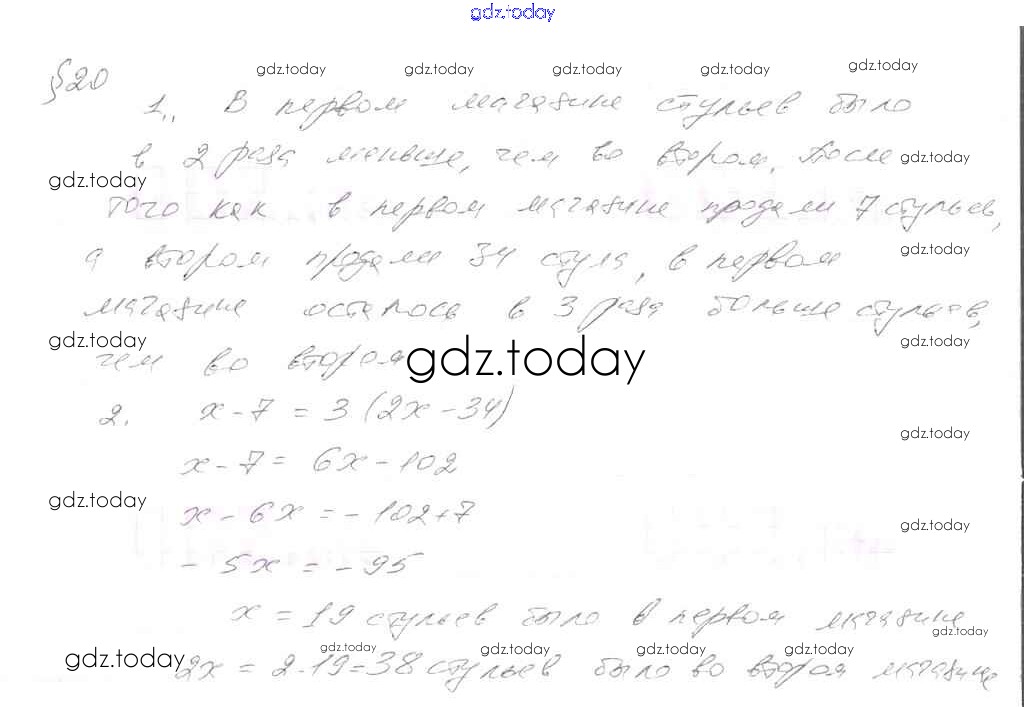 gdz.today
§20
gdz.today gdz.today gdz.today gdz.today gdz.today
1. В первом магазине стульев было
в 2 раза меньше, чем во втором. После gdz.today
gdz.today
того как в первом магазине продали 7 стульев,
а втором продали 34 стула, в первом gdz.today
магазине осталось в 3 раза больше стульев,
gdz.today чем во втором gdz.today gdz.today
2. x - 7 = 3 (2x - 34)
gdz.today
x - 7 = 6x - 102
gdz.today
x - 6x = - 102 + 7
gdz.today
- 5x = - 95
x = 19 стульев было в первом магазине
gdz.today gdz.today gdz.today gdz.today gdz.today gdz.today
2x = 2 · 19 = 38 стульев было во втором магазине